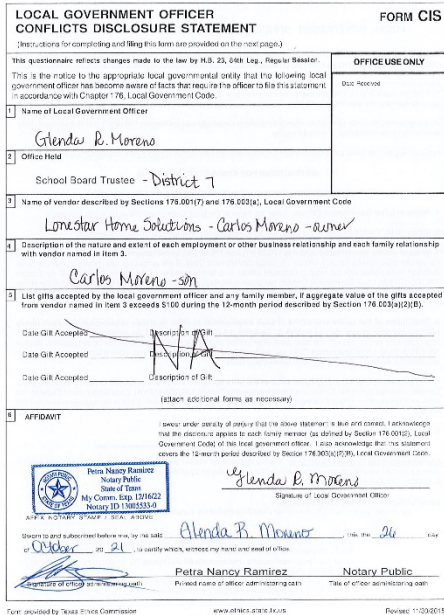 LOCAL GOVERNMENT OFFICER
CONFLICTS DISCLOSURE STATEMENT
FORM CIS
(Instructions for completing and filing this form are provided on the next page.)
This questionnaire reflects changes made to the law by H.B. 23, 84th Leg., Regular Session.
OFFICE USE ONLY
This is the notice to the appropriate local governmental entity that the following local
government officer has become aware of facts that require the officer to file this statement
in accordance with Chapter 176, Local Government Code.
Date Received
1 Name of Local Government Officer
Glenda R. Moreno
2 Office Held
School Board Trustee - District 7
3 Name of vendor described by Sections 176.001(7) and 176.003(a), Local Government Code
Lonestar Home Solutions - Carlos Moreno - owner
4 Description of the nature and extent of each employment or other business relationship and each family relationship
with vendor named in item 3.
Carlos Moreno - son
5 List gifts accepted by the local government officer and any family member, if aggregate value of the gifts accepted
from vendor named in item 3 exceeds $100 during the 12-month period described by Section 176.003(a)(2)(B).
Date Gift Accepted Description of Gift
NA
Date Gift Accepted Description of Gift
Date Gift Accepted Description of Gift
(attach additional forms as necessary)
6 AFFIDAVIT
I swear under penalty of perjury that the above statement is true and correct. I acknowledge
that the disclosure applies to each family member (as defined by Section 176.001(2), Local
Government Code) of this local government officer. I also acknowledge that this statement
covers the 12-month period described by Section 176.003(a)(2)(B), Local Government Code.
NOTARY PUBLIC
STATE OF TEXAS
Petra Nancy Ramirez
Notary Public
State of Texas
My Comm. Exp. 12/16/22
Notary ID 13005533-0
Glenda R. Moreno
Signature of Local Government Officer
AFFIX NOTARY STAMP / SEAL ABOVE
Sworn to and subscribed before me, by the said Glenda R. Moreno, this the 26 day
of October, 20 21, to certify which, witness my hand and seal of office.
Petra Nancy Ramirez Notary Public
Signature of officer administering oath Printed name of officer administering oath Title of officer administering oath
Form provided by Texas Ethics Commission www.ethics.state.tx.us Revised 11/30/2015